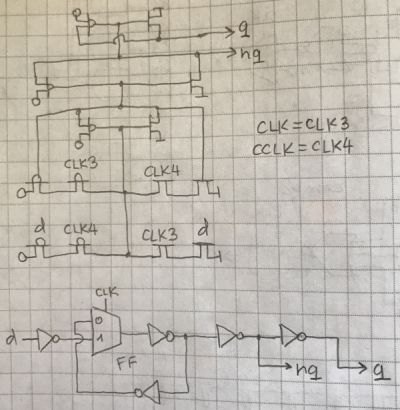 q
nq
CLK3 CLK4
CLK=CLK3
CCLK=CLK4
d CLK4 CLK3 d
CLK
d 0
1
FF
nq q